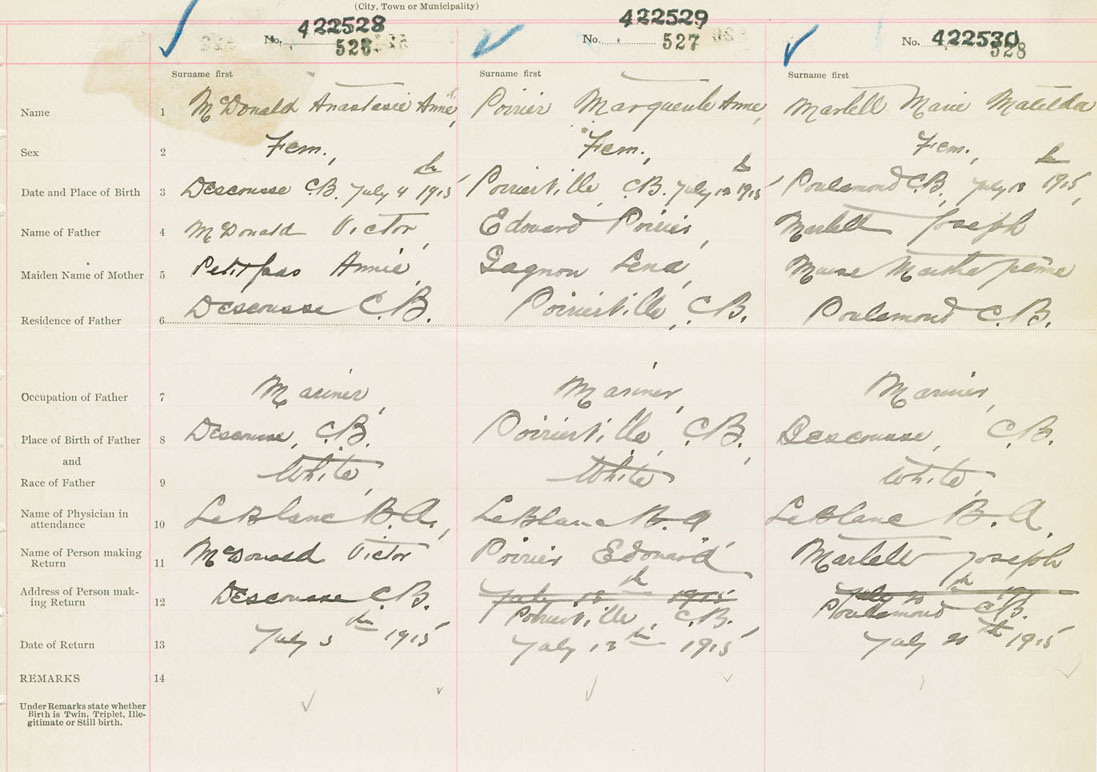 (City, Town or Municipality)
No. 422528 526
No. 422529 527
No. 422530 528
Surname first Surname first Surname first
Name 1 McDonald Anastasie Anne, Poirier Anne, Martell Marie Matilda
Sex 2 Fem., Fem., Fem.,
Date and Place of Birth 3 Descousse C.B. July 4th 1915 Poirierville, C.B. July 12th 1915 Poulamond C.B., July 18th 1915,
Name of Father 4 McDonald Victor, Edouard Poirier, Martell Joseph
Maiden Name of Mother 5 Petitpas Annie, Gagnon Lena, Martha Jane
Residence of Father 6 Descousse C.B. Poirierville, C.B. Poulamond C.B.
Occupation of Father 7 Mariner, Mariner, Mariner,
Place of Birth of Father 8 Descousse, C.B. Poirierville, C.B., Descousse, C.B.
and
Race of Father 9 White, White, White,
Name of Physician in
attendance 10 LeBlanc B.A., LeBlanc B.A. LeBlanc B.A.
Name of Person making
Return 11 McDonald Victor Poirier Edouard Martell Joseph
Address of Person mak-
ing Return 12 Descousse C.B. July 13th 1915 Poirierville, C.B. Poulamond C.B.
Date of Return 13 July 5th 1915 July 13th 1915 July 20th 1915
REMARKS 14
Under Remarks state whether
Birth is Twin, Triplet, Ille-
gitimate or Still birth.